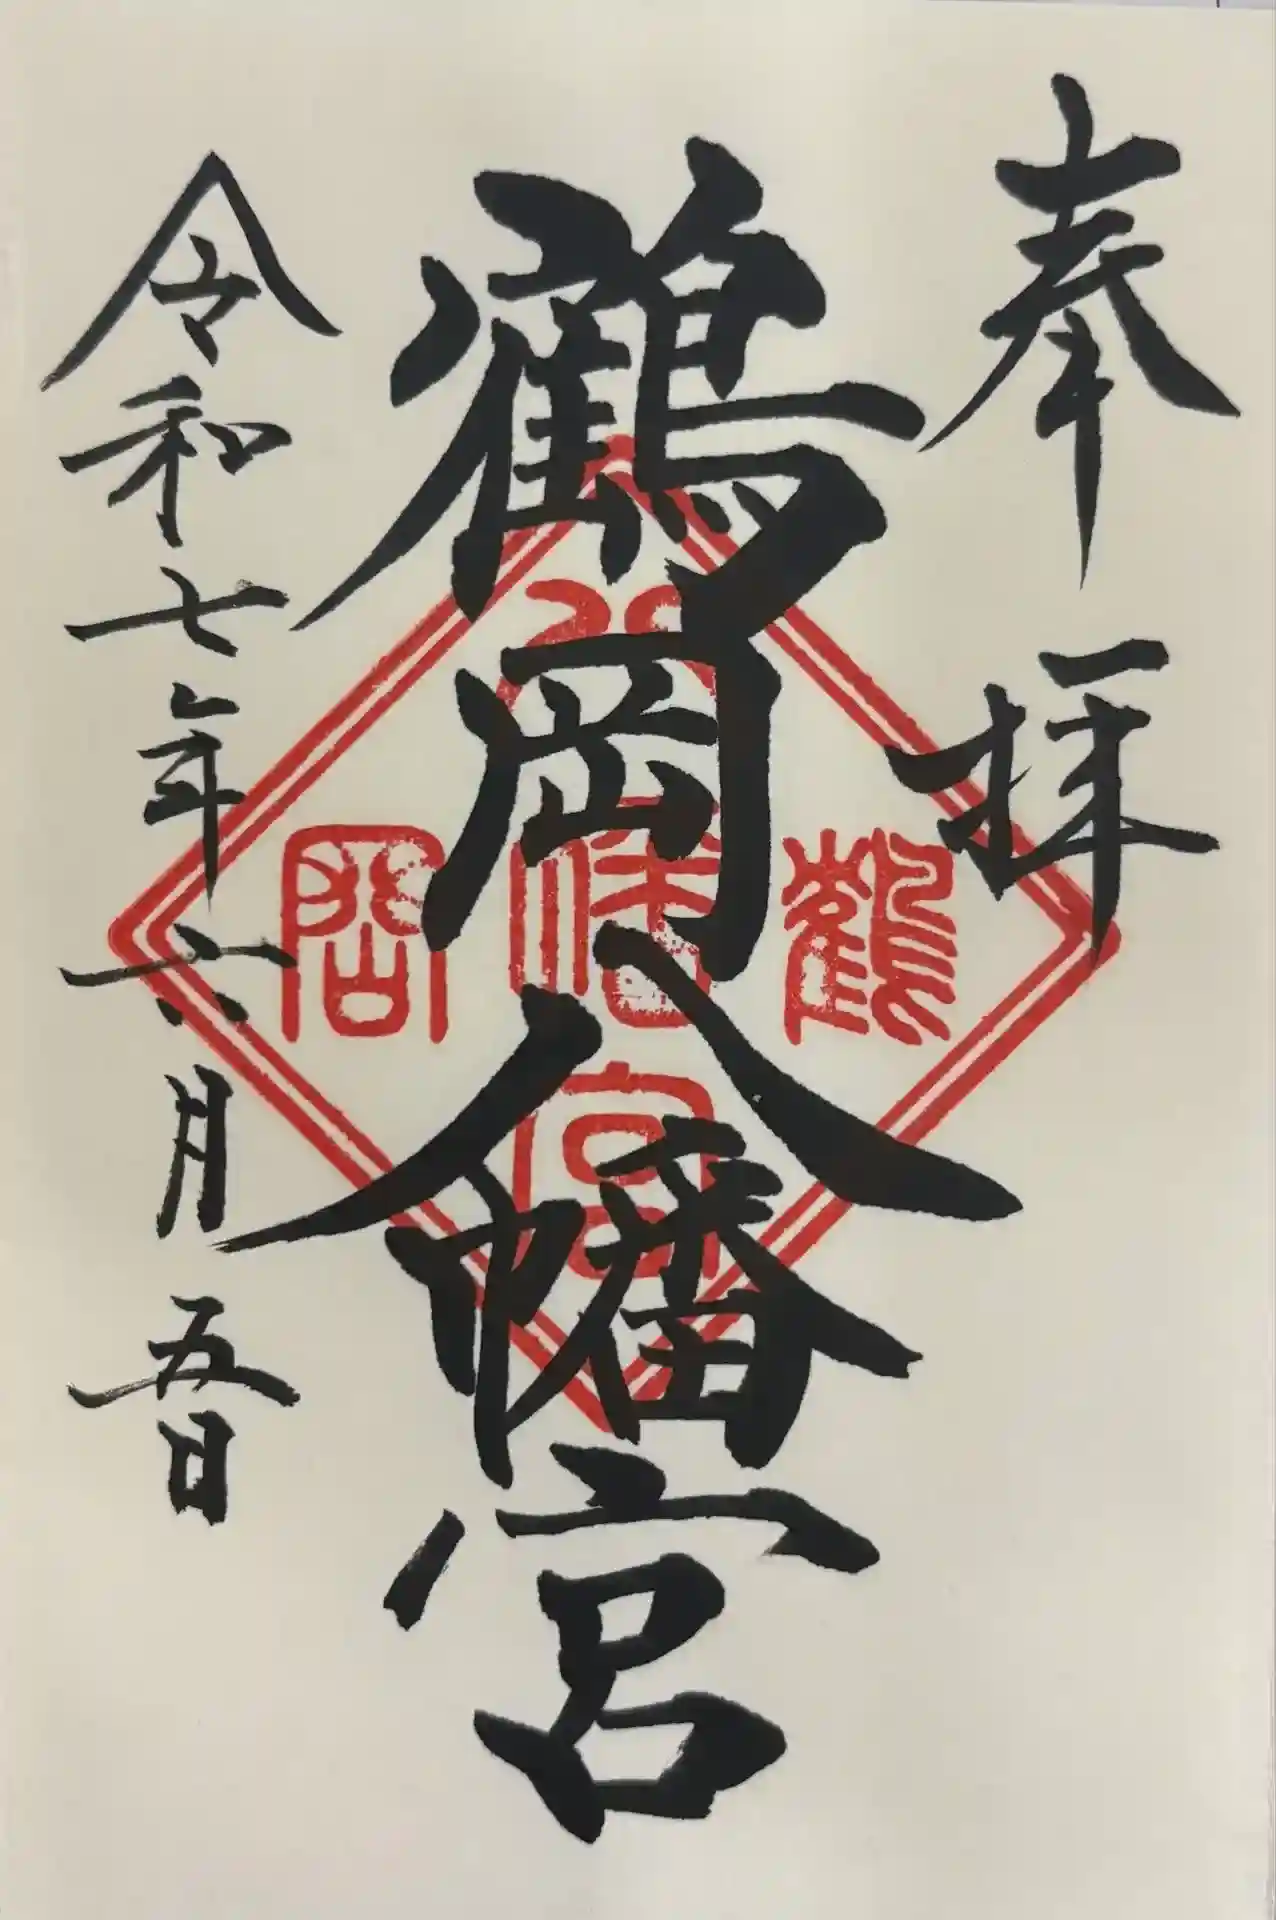 奉拝
鶴岡八幡宮
令和七年六月五日
八
鶴幡岡
宮